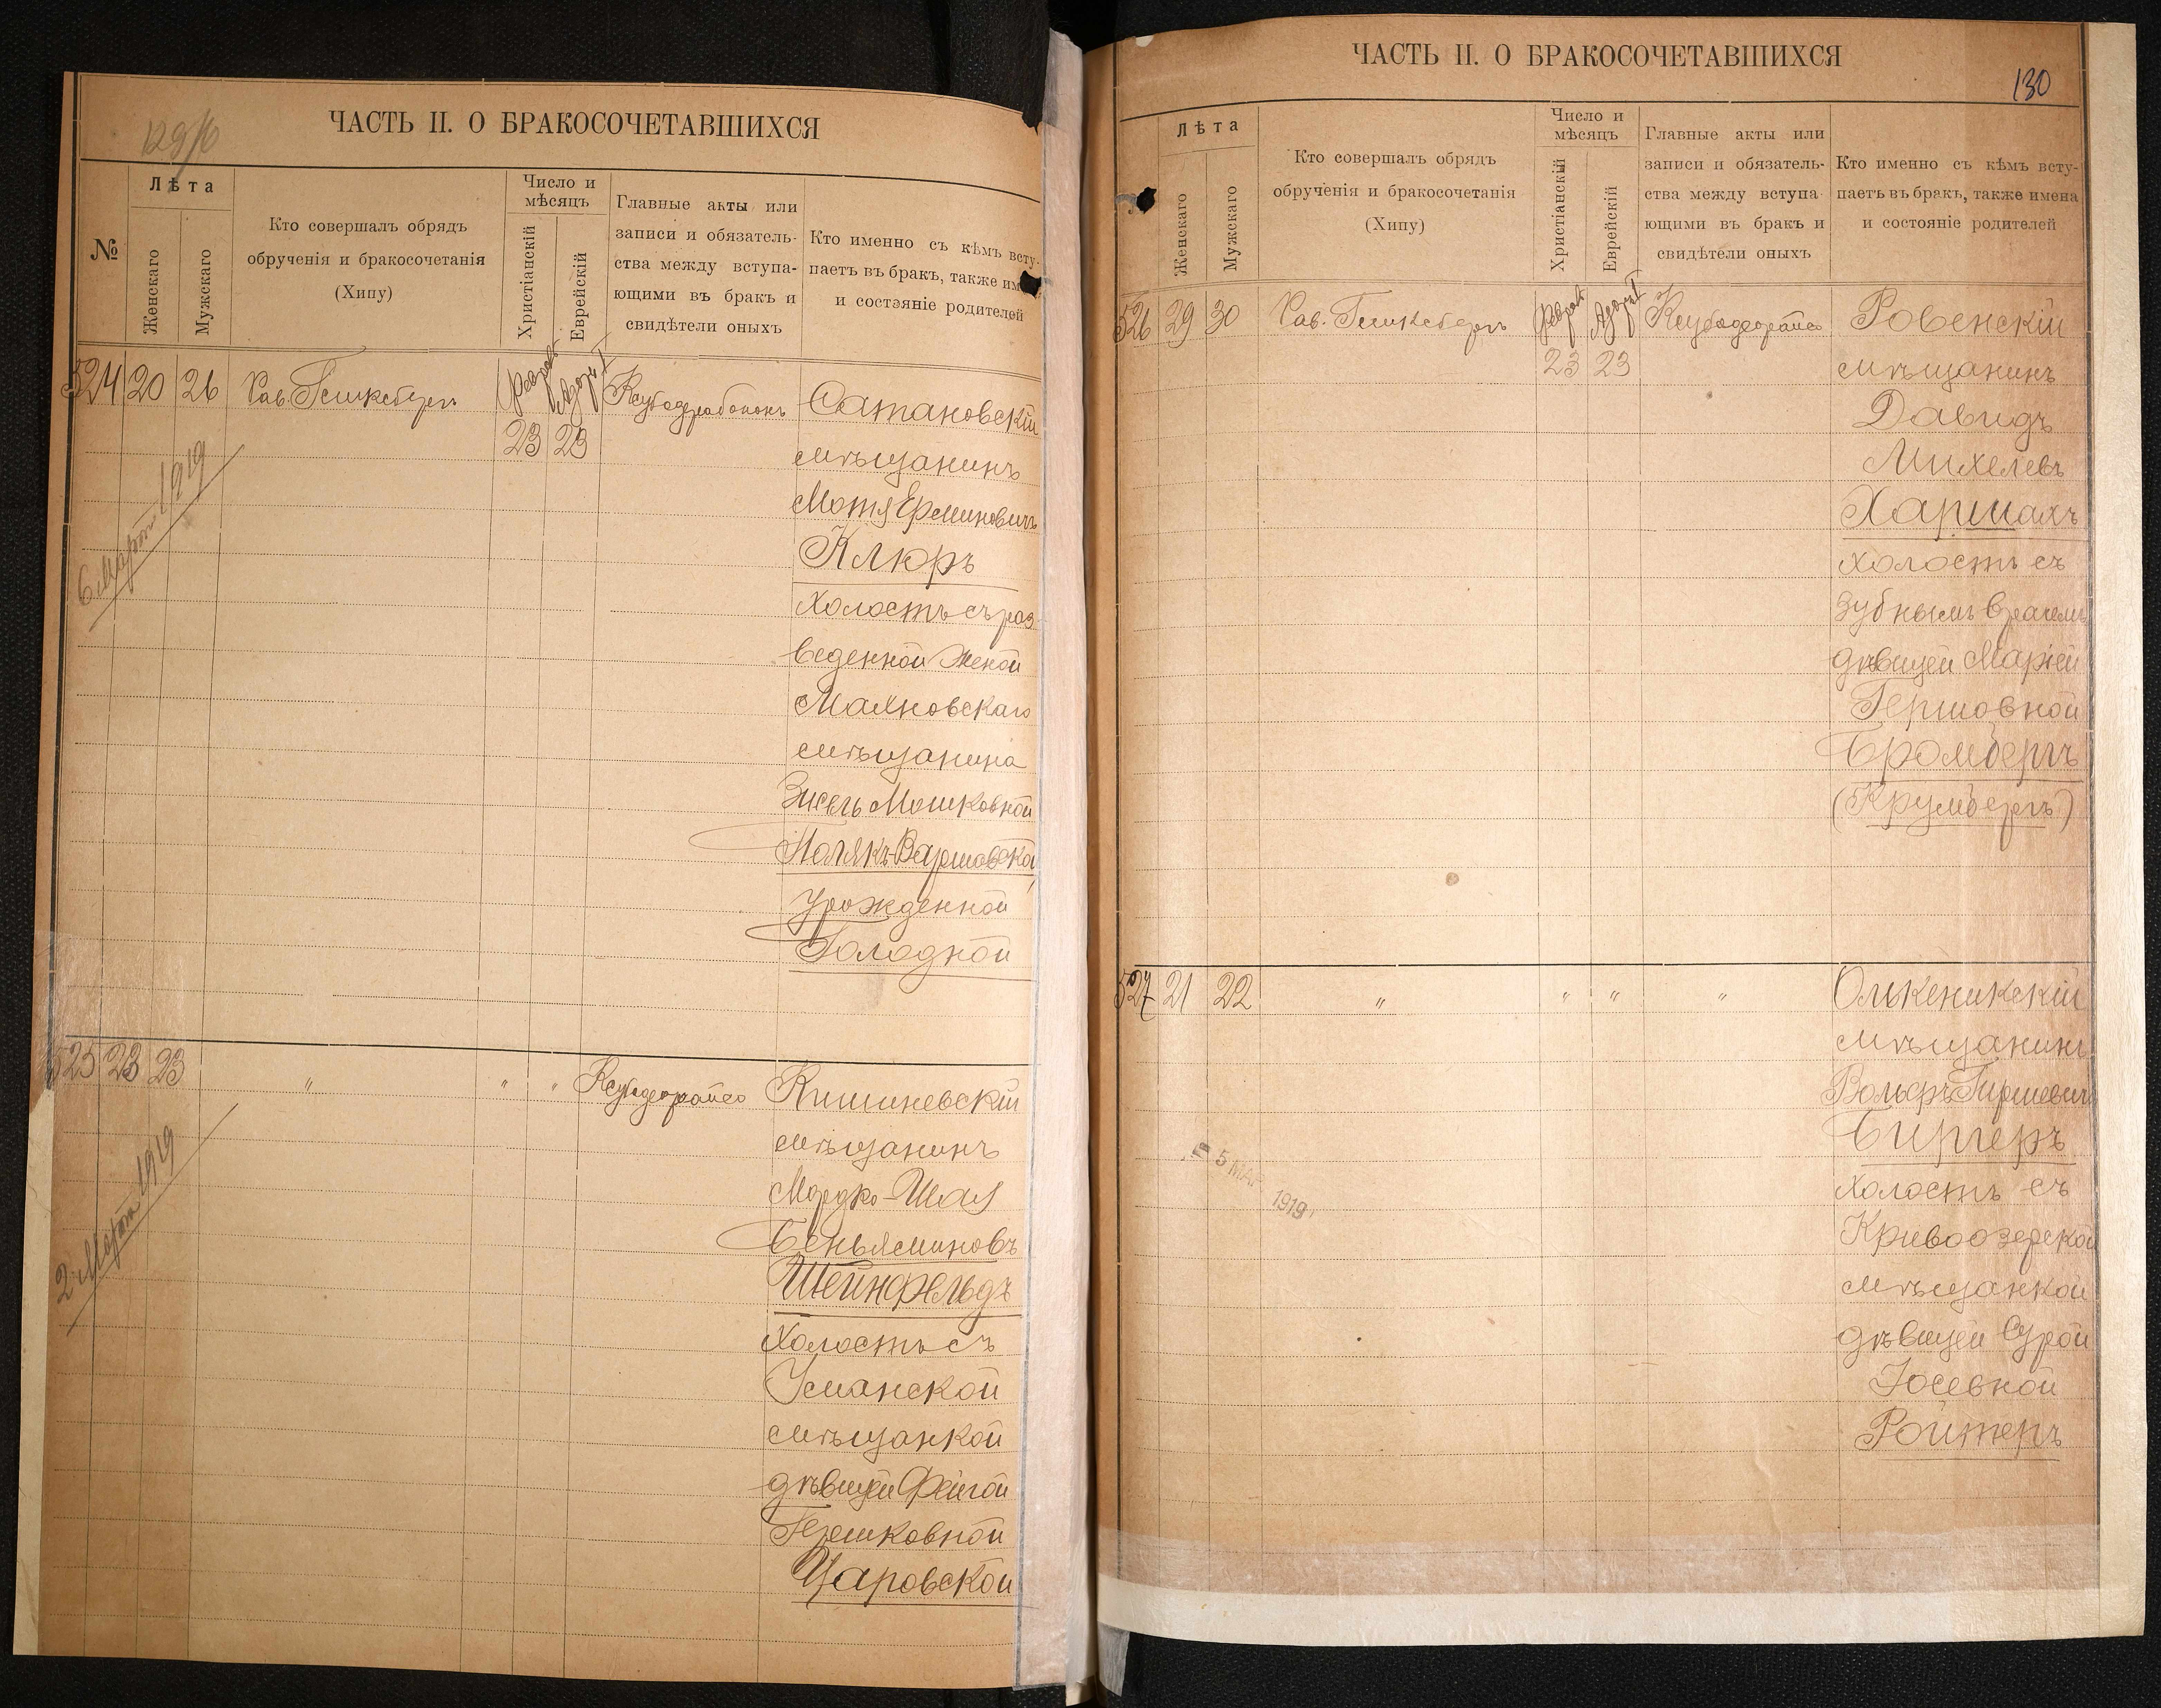 129/б
ЧАСТЬ II. О БРАКОСОЧЕТАВШИХСЯ
№
Лѣта
Женскаго
Мужскаго
Кто совершалъ обрядъ
обрученія и бракосочетанія
(Хипу)
Число и
мѣсяцъ
Христіанскій
Еврейскій
Главные акты или
записи и обязатель-
ства между вступа-
ющими въ бракъ и
свидѣтели оныхъ
Кто именно съ кѣмъ всту-
паетъ въ бракъ, также им
и состояніе родителей
524 20 26
Февраль
23 23
Сатановскій
мѣщанинъ
Мотя
Клюръ
холостъ съ раз
веденной женой
мѣщанина
Мошковной
Полякъ-Варшавской
урожденной
Голодной
6 Марта 1919
525 23 23 " " "
Кишиневскій
мѣщанинъ
Мордко-Шая
Беньяминовъ
Шейнфельдъ
холостъ съ
Уманской
мѣщанкой
дѣвицей Фейгой
Гершковной
Царовской
2 Марта 1919
ЧАСТЬ II. О БРАКОСОЧЕТАВШИХСЯ
130
Лѣта
Женскаго
Мужскаго
Кто совершалъ обрядъ
обрученія и бракосочетанія
(Хипу)
Число и
мѣсяцъ
Христіанскій
Еврейскій
Главные акты или
записи и обязатель-
ства между вступа
ющими въ бракъ и
свидѣтели оныхъ
Кто именно съ кѣмъ всту-
паетъ въ бракъ, также имена
и состояніе родителей
526 29 30
Февраль
23 23
Ровенскій
мѣщанинъ
Давидъ
Михелевъ
холостъ съ
зубнымъ врачемъ
дѣвицей Маріей
Гершовной
Бромбергъ
(Крумбергъ)
527 21 22 " " " "
Олькеникскій
мѣщанинъ
Вольфъ Гиршевичъ
Биргеръ
холостъ съ
Кривоозерской
мѣщанкой
дѣвицей Сурой
Іосевной
Ройтеръ
5 МАР 1919